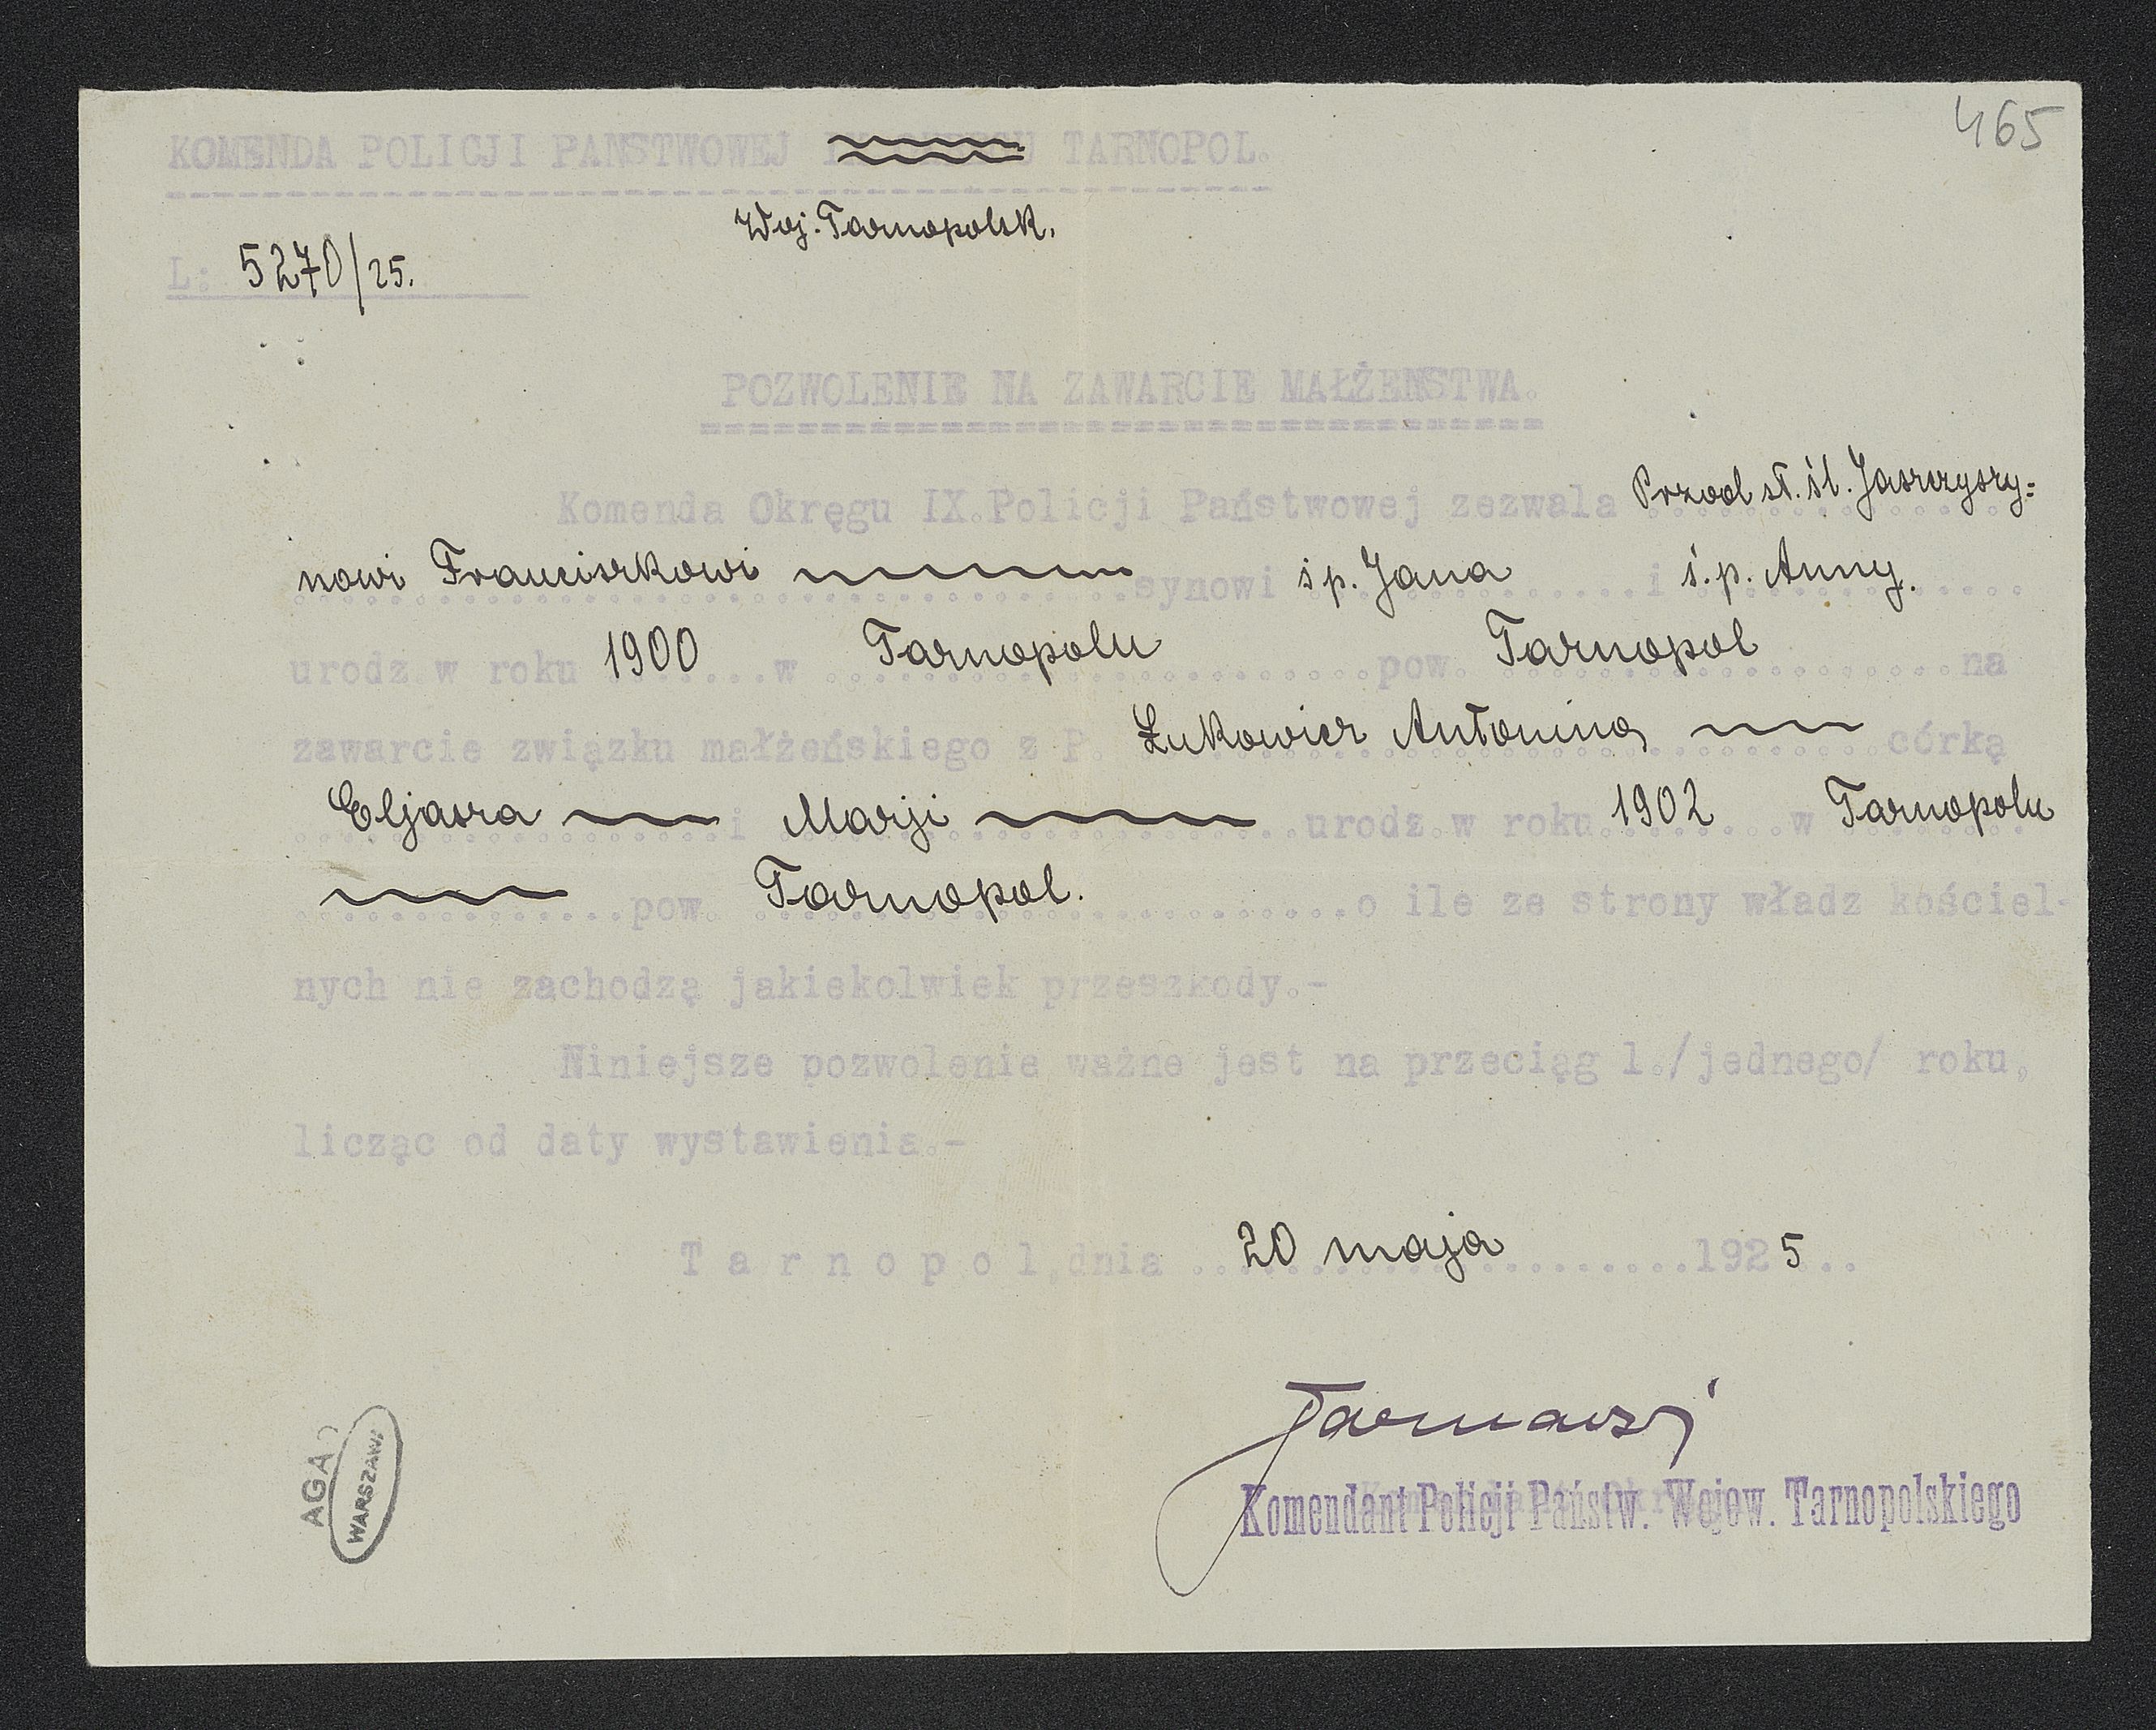 465
KOMENDA POLICJI PAŃSTWOWEJ IX OKRĘGU TARNOPOL.
Woj. Tarnopolsk.
L: 5270/25.
POZWOLENIE NA ZAWARCIE MAŁŻEŃSTWA.
Komenda Okręgu IX.Policji Państwowej zezwala Przod st. śl. Jaszczyszy=
nowi Franciszkowi synowi śp. Jana i ś.p. Anny.
urodz.w roku 1900 w Tarnopolu pow. Tarnopol na
zawarcie związku małżeńskiego z P. Łukowicz Antoniną córką
Eljasza i Marji urodz.w roku 1902 w Tarnopolu
pow. Tarnopol. o ile ze strony władz kościel-
nych nie zachodzą jakiekolwiek przeszkody.-
Niniejsze pozwolenie ważne jest na przeciąg 1./jednego/ roku,
licząc od daty wystawienia.-
Tarnopol, dnia 20 maja 1925
Komendant Policji Państw. Wojew. Tarnopolskiego
AGAD
WARSZAWA